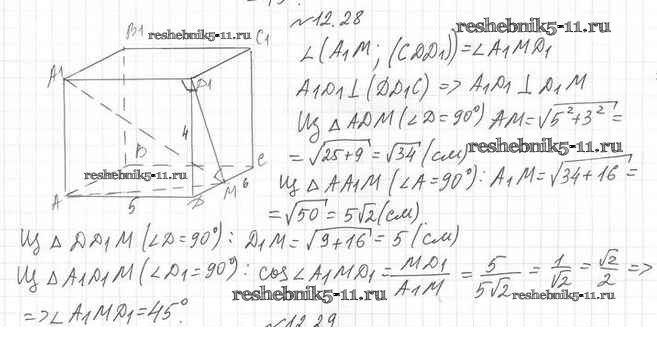 №12.28
reshebnik5-11.ru
B1
reshebnik5-11.ru
C1
∠(A1M; (CDD1))=∠A1MD1
A1
D1
A1D1⊥(DD1C) => A1D1⊥D1M
Из △ADM (∠D=90°) AM=√5²+3² =
4
= √25+9 = √34 (см)
reshebnik5-11.ru
B
C
reshebnik5-11.ru
M 6
Из △AA1M (∠A=90°): A1M=√34+16 =
A
5
D
= √50 = 5√2 (см)
Из △DD1M (∠D=90°): D1M=√9+16 = 5 (см)
Из △A1D1M (∠D1=90°): cos∠A1MD1= MD1/A1M = 5/5√2 = 1/√2 = √2/2 =>
reshebnik5-11.ru
reshebnik5-11.ru
=>∠A1MD1=45°.
№12.29